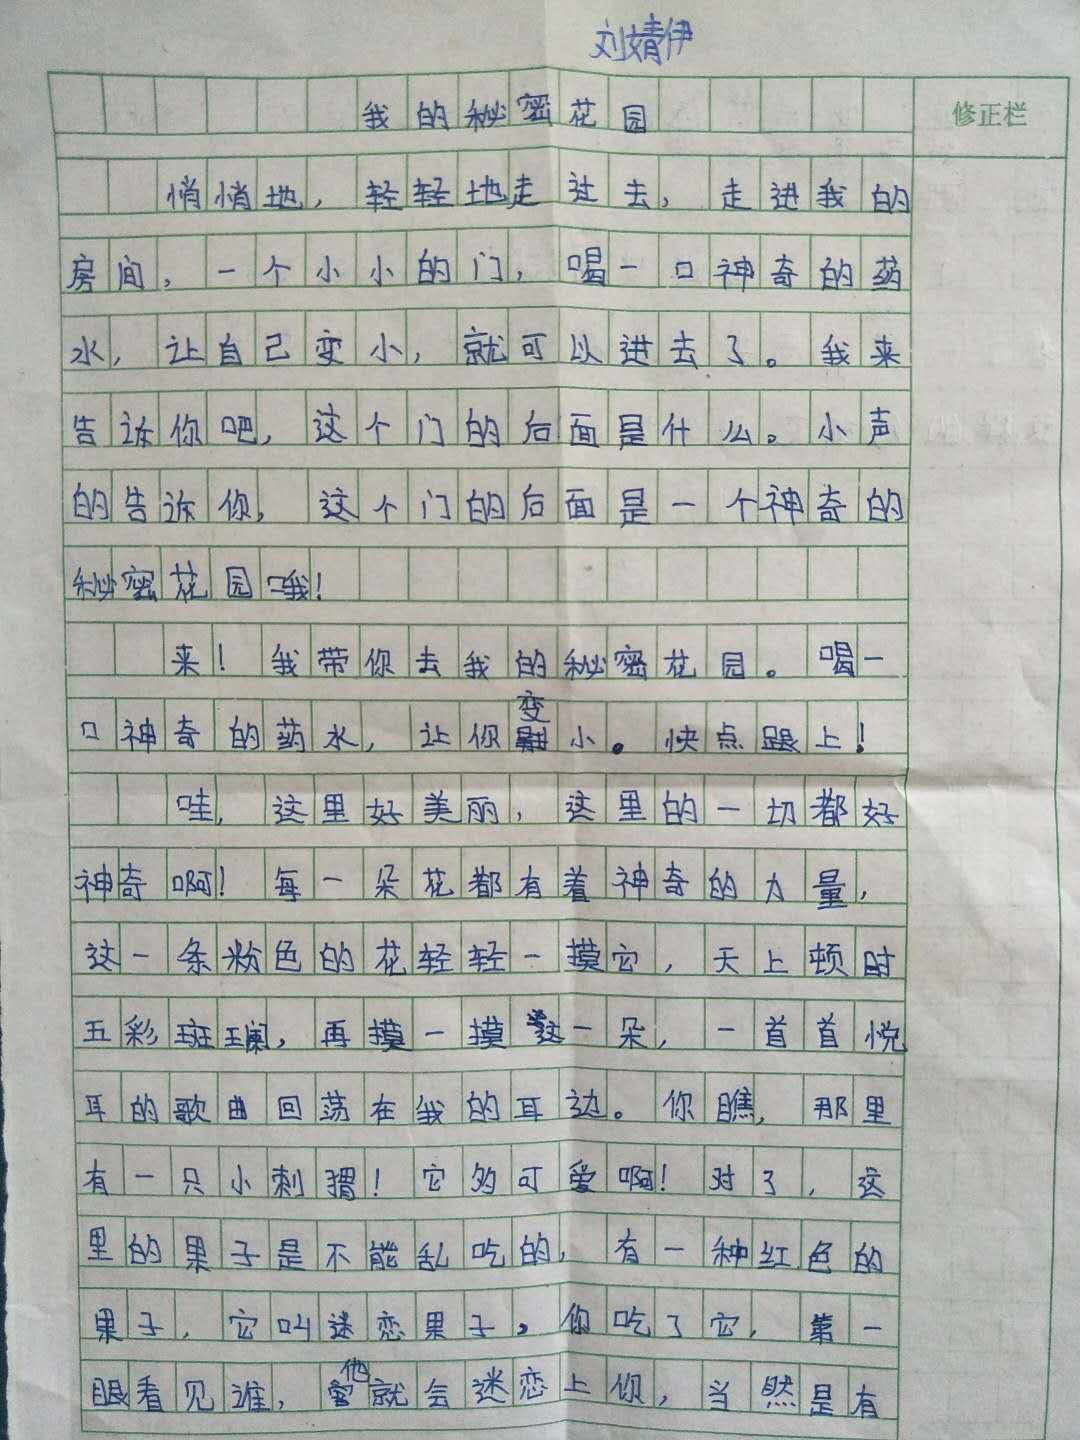 刘婧伊
我的秘密花园
修正栏
悄悄地，轻轻地走过去，走进我的
房间，一个小小的门，喝一口神奇的药
水，让自己变小，就可以进去了。我来
告诉你吧，这个门的后面是什么。小声
的告诉你，这个门的后面是一个神奇的
秘密花园哦！
来！我带你去我的秘密花园。喝一
口神奇的药水，让你变小。快点跟上！
哇，这里好美丽，这里的一切都好
神奇啊！每一朵花都有着神奇的力量，
这一条粉色的花轻轻一摸它，天上顿时
五彩斑斓，再摸一摸这一朵，一首首悦
耳的歌曲回荡在我的耳边。你瞧，那里
有一只小刺猬！它多可爱啊！对了，这
里的果子是不能乱吃的，有一种红色的
果子，它叫迷恋果子，你吃了它，第一
眼看见谁，他就会迷恋上你，当然是有